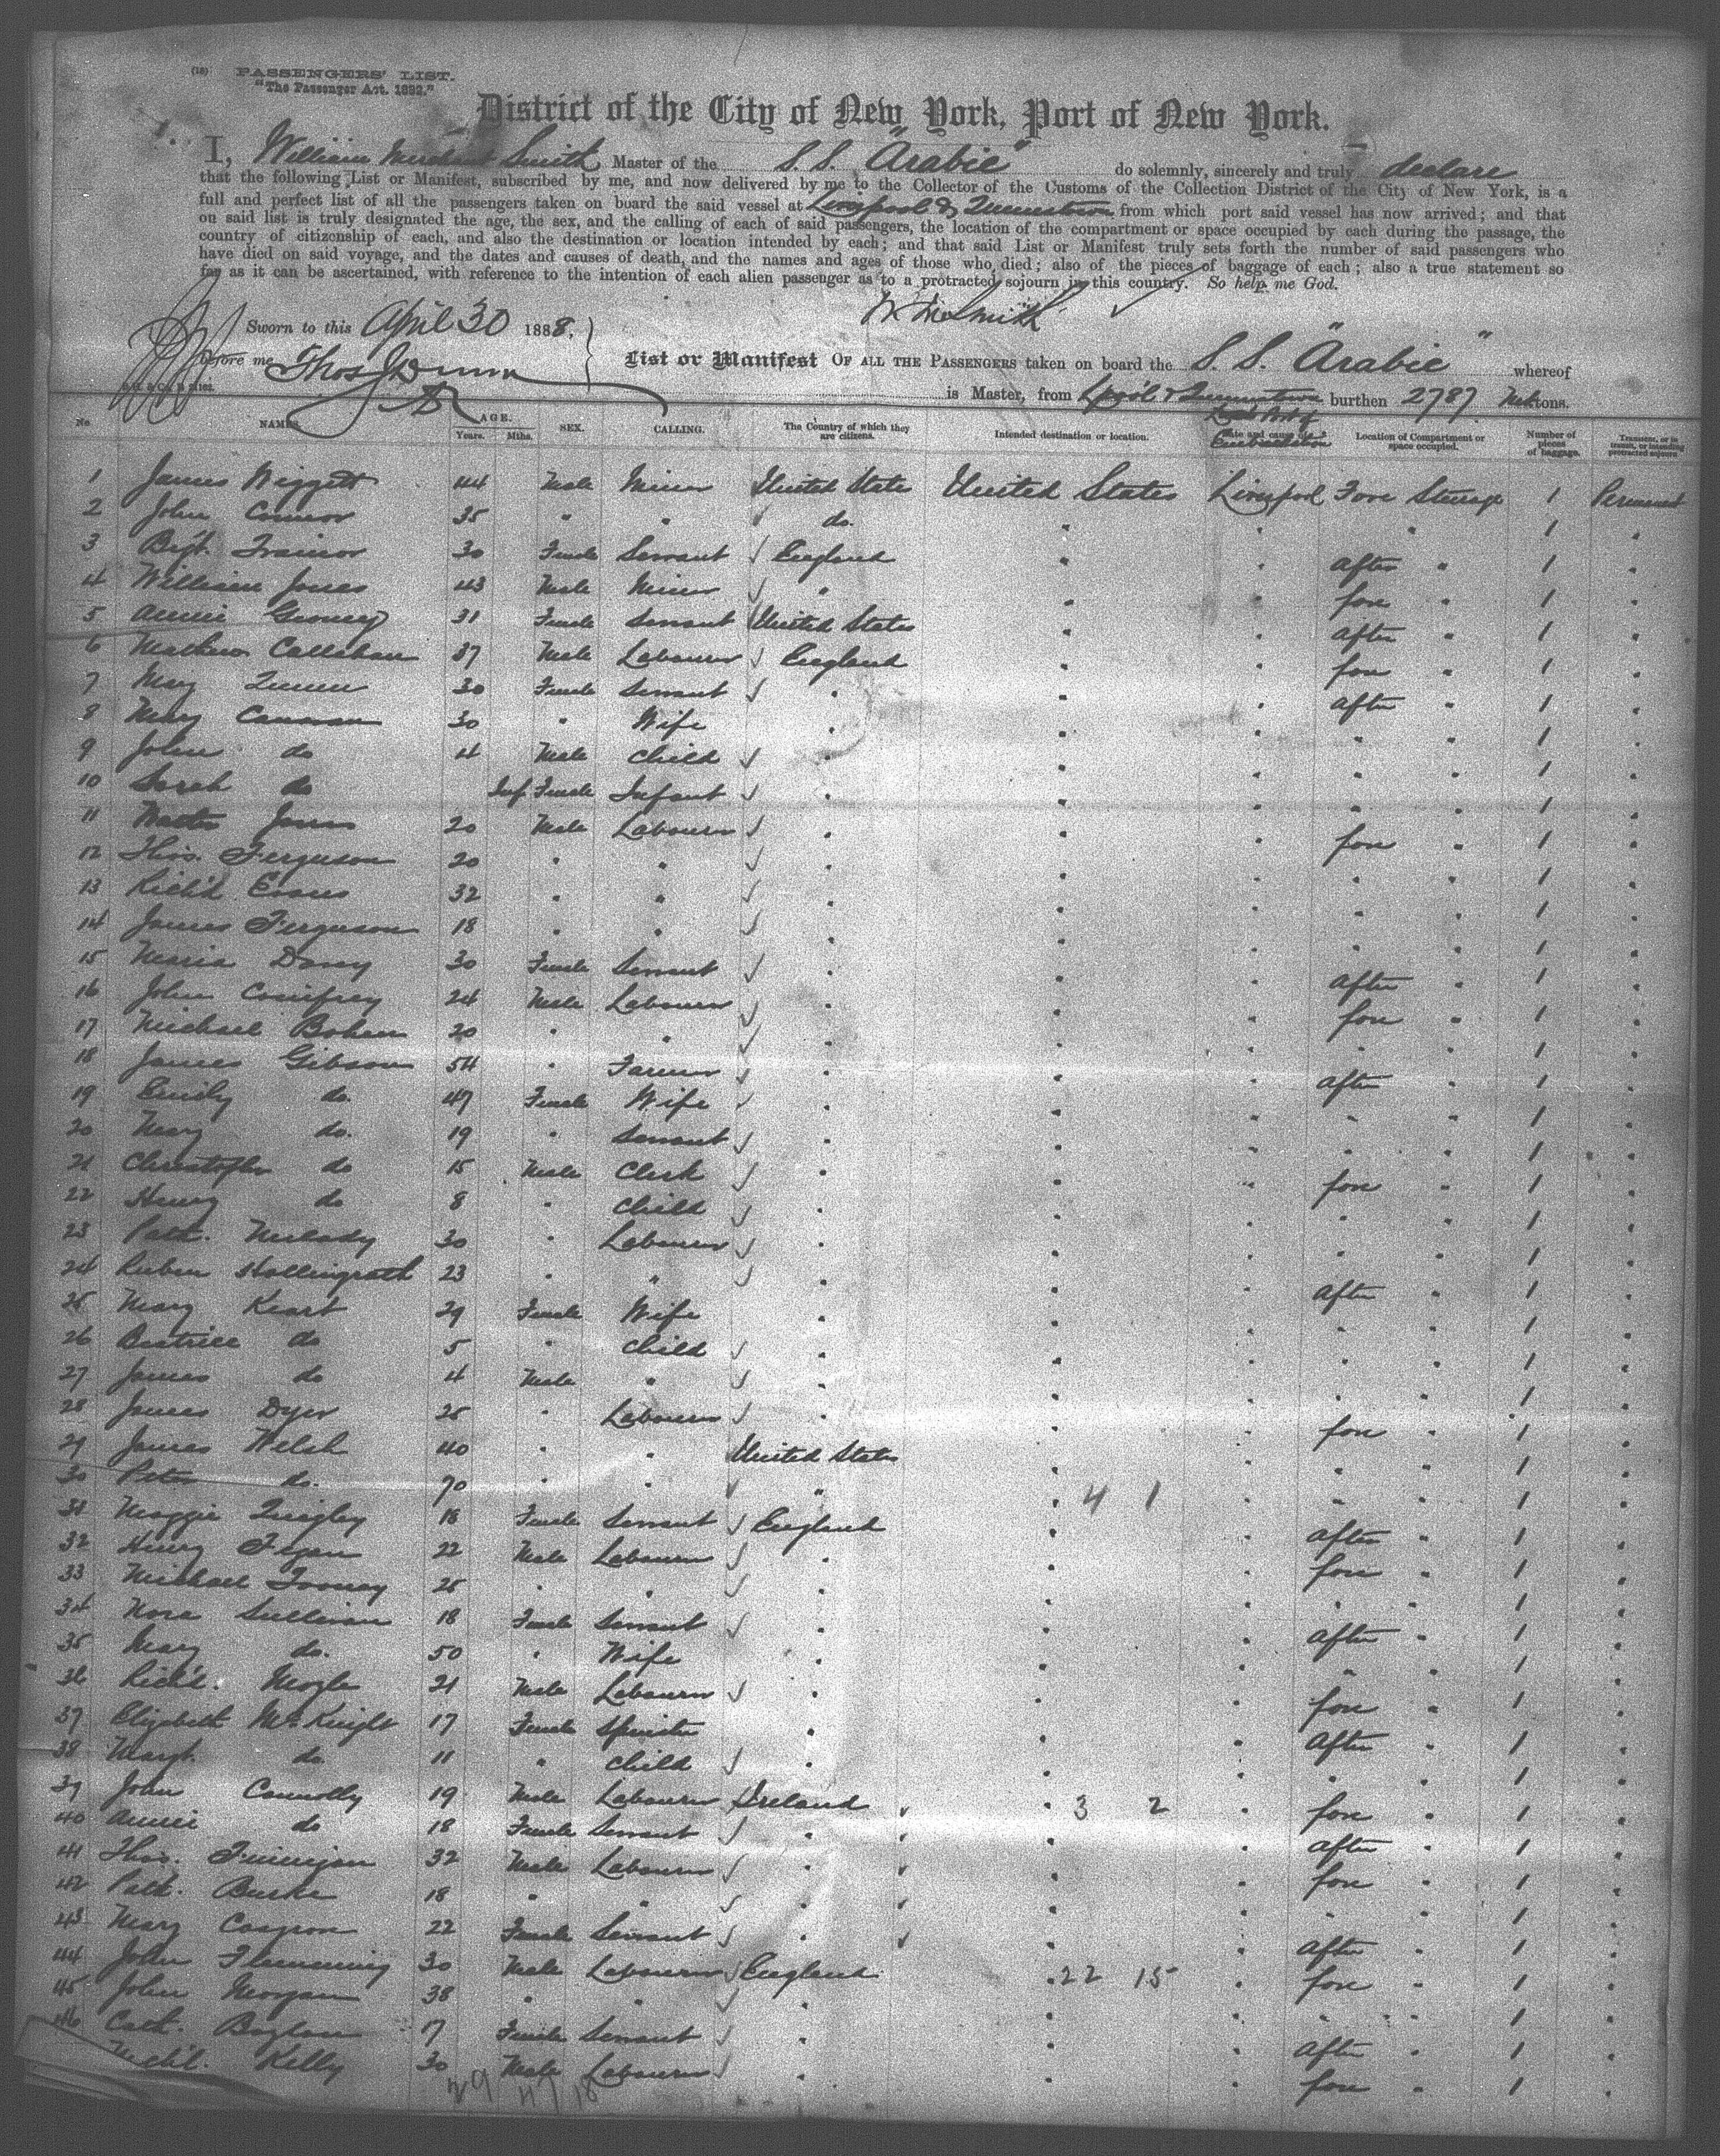 (18) PASSENGERS' LIST.
"The Passenger Act. 1882."
District of the City of New York, Port of New York.
I, William Smith Master of the S.S. "Arabic" do solemnly, sincerely and truly declare
that the following List or Manifest, subscribed by me, and now delivered by me to the Collector of the Customs of the Collection District of the City of New York, is a
full and perfect list of all the passengers taken on board the said vessel at Liverpool & Queenstown from which port said vessel has now arrived; and that
on said list is truly designated the age, the sex, and the calling of each of said passengers, the location of the compartment or space occupied by each during the passage, the
country of citizenship of each, and also the destination or location intended by each; and that said List or Manifest truly sets forth the number of said passengers who
have died on said voyage, and the dates and causes of death, and the names and ages of those who died; also of the pieces of baggage of each; also a true statement so
far as it can be ascertained, with reference to the intention of each alien passenger as to a protracted sojourn in this country. So help me God.
Sworn to this April 30 1888.
W. M. Smith
before me Thos J Dunn
List or Manifest OF ALL THE PASSENGERS taken on board the S.S. "Arabic" whereof
is Master, from L'pool & Queenstown burthen 2787 Nett tons.
No NAMES. AGE. Years. Mths. SEX. CALLING. The Country of which they are citizens. Intended destination or location. Port of Embarkation Location of Compartment or space occupied. Number of pieces of baggage. Transient, or in transit, or intending protracted sojourn
1 James Wiggett 44 Male Miner United State United States Liverpool Fore Steerage 1 Permanent
2 John Connor 35 " " do. " " " 1 "
3 Bigt. Trainor 30 Female Servant England " " After " 1 "
4 William Jones 43 Male Miner " " " fore " 1 "
5 Annie 31 Female Servant United States " " After " 1 "
6 Mathew Callahan 37 Male Labourer England " " fore " 1 "
7 Mary Quinn 30 Female Servant " " " After " 1 "
8 Mary 30 " Wife " " " " " 1 "
9 John do 4 Male Child " " " " " 1 "
10 Sarah do Inf Female Infant " " " " " 1 "
11 Jones 20 Male Labourer " " " fore " 1 "
12 Thos. Ferguson 20 " " " " " " " 1 "
13 Rich'd Evans 32 " " " " " " " 1 "
14 James Ferguson 18 " " " " " " " 1 "
15 Maria Darcy 30 Female Servant " " " After " 1 "
16 John 24 Male Labourer " " " fore " 1 "
17 Michael Bohen 20 " " " " " " " 1 "
18 James Gibson 54 " Farmer " " " After " 1 "
19 Emily do. 47 Female Wife " " " " " 1 "
20 Mary do. 19 " Servant " " " " " 1 "
21 Christopher do 15 Male Clerk " " " fore " 1 "
22 Henry do 8 " Child " " " " " 1 "
23 Patk. Melady 30 " Labourer " " " " " 1 "
24 Ruben Hollingrath 23 " " " " " After " 1 "
25 Mary Keart 29 Female Wife " " " " " 1 "
26 Beatrice do 5 " Child " " " " " 1 "
27 James do 4 Male " " " " " " 1 "
28 James Dyer 25 " Labourer " " " fore " 1 "
29 James Welsh 40 " " United States " " " " 1 "
30 Peter do. 70 " " " " 4 1 " " " 1 "
31 Maggie Quigley 18 Female Servant England " " After " 1 "
32 Henry Fegan 22 Male Labourer " " " fore " 1 "
33 Michael Toomey 25 " " " " " " " 1 "
34 Nora Sullivan 18 Female Servant " " " After " 1 "
35 Mary do. 50 " Wife " " " " " 1 "
36 Rich'd. Mogle 21 Male Labourer " " " fore " 1 "
37 Elizabeth McKnight 17 Female Spinster " " " After " 1 "
38 Margt. do. 11 " Child " " " " " 1 "
39 John Connolly 19 Male Labourer Ireland " 3 2 " fore " 1 "
40 Annie do 18 Female Servant " " " After " 1 "
41 Thos. Finnigan 32 Male Labourer " " " fore " 1 "
42 Patk. Burke 18 " " " " " " " 1 "
43 Mary Cosgrove 22 Female Servant " " " After " 1 "
44 John Flemming 30 Male Labourer England " 22 15 " fore " 1 "
45 John Morgan 38 " " " " " " " 1 "
46 Cath. Boylan 7 Female Servant " " " After " 1 "
Mich'l. Kelly 30 Male Labourer " " " fore " 1 "
29 47 18